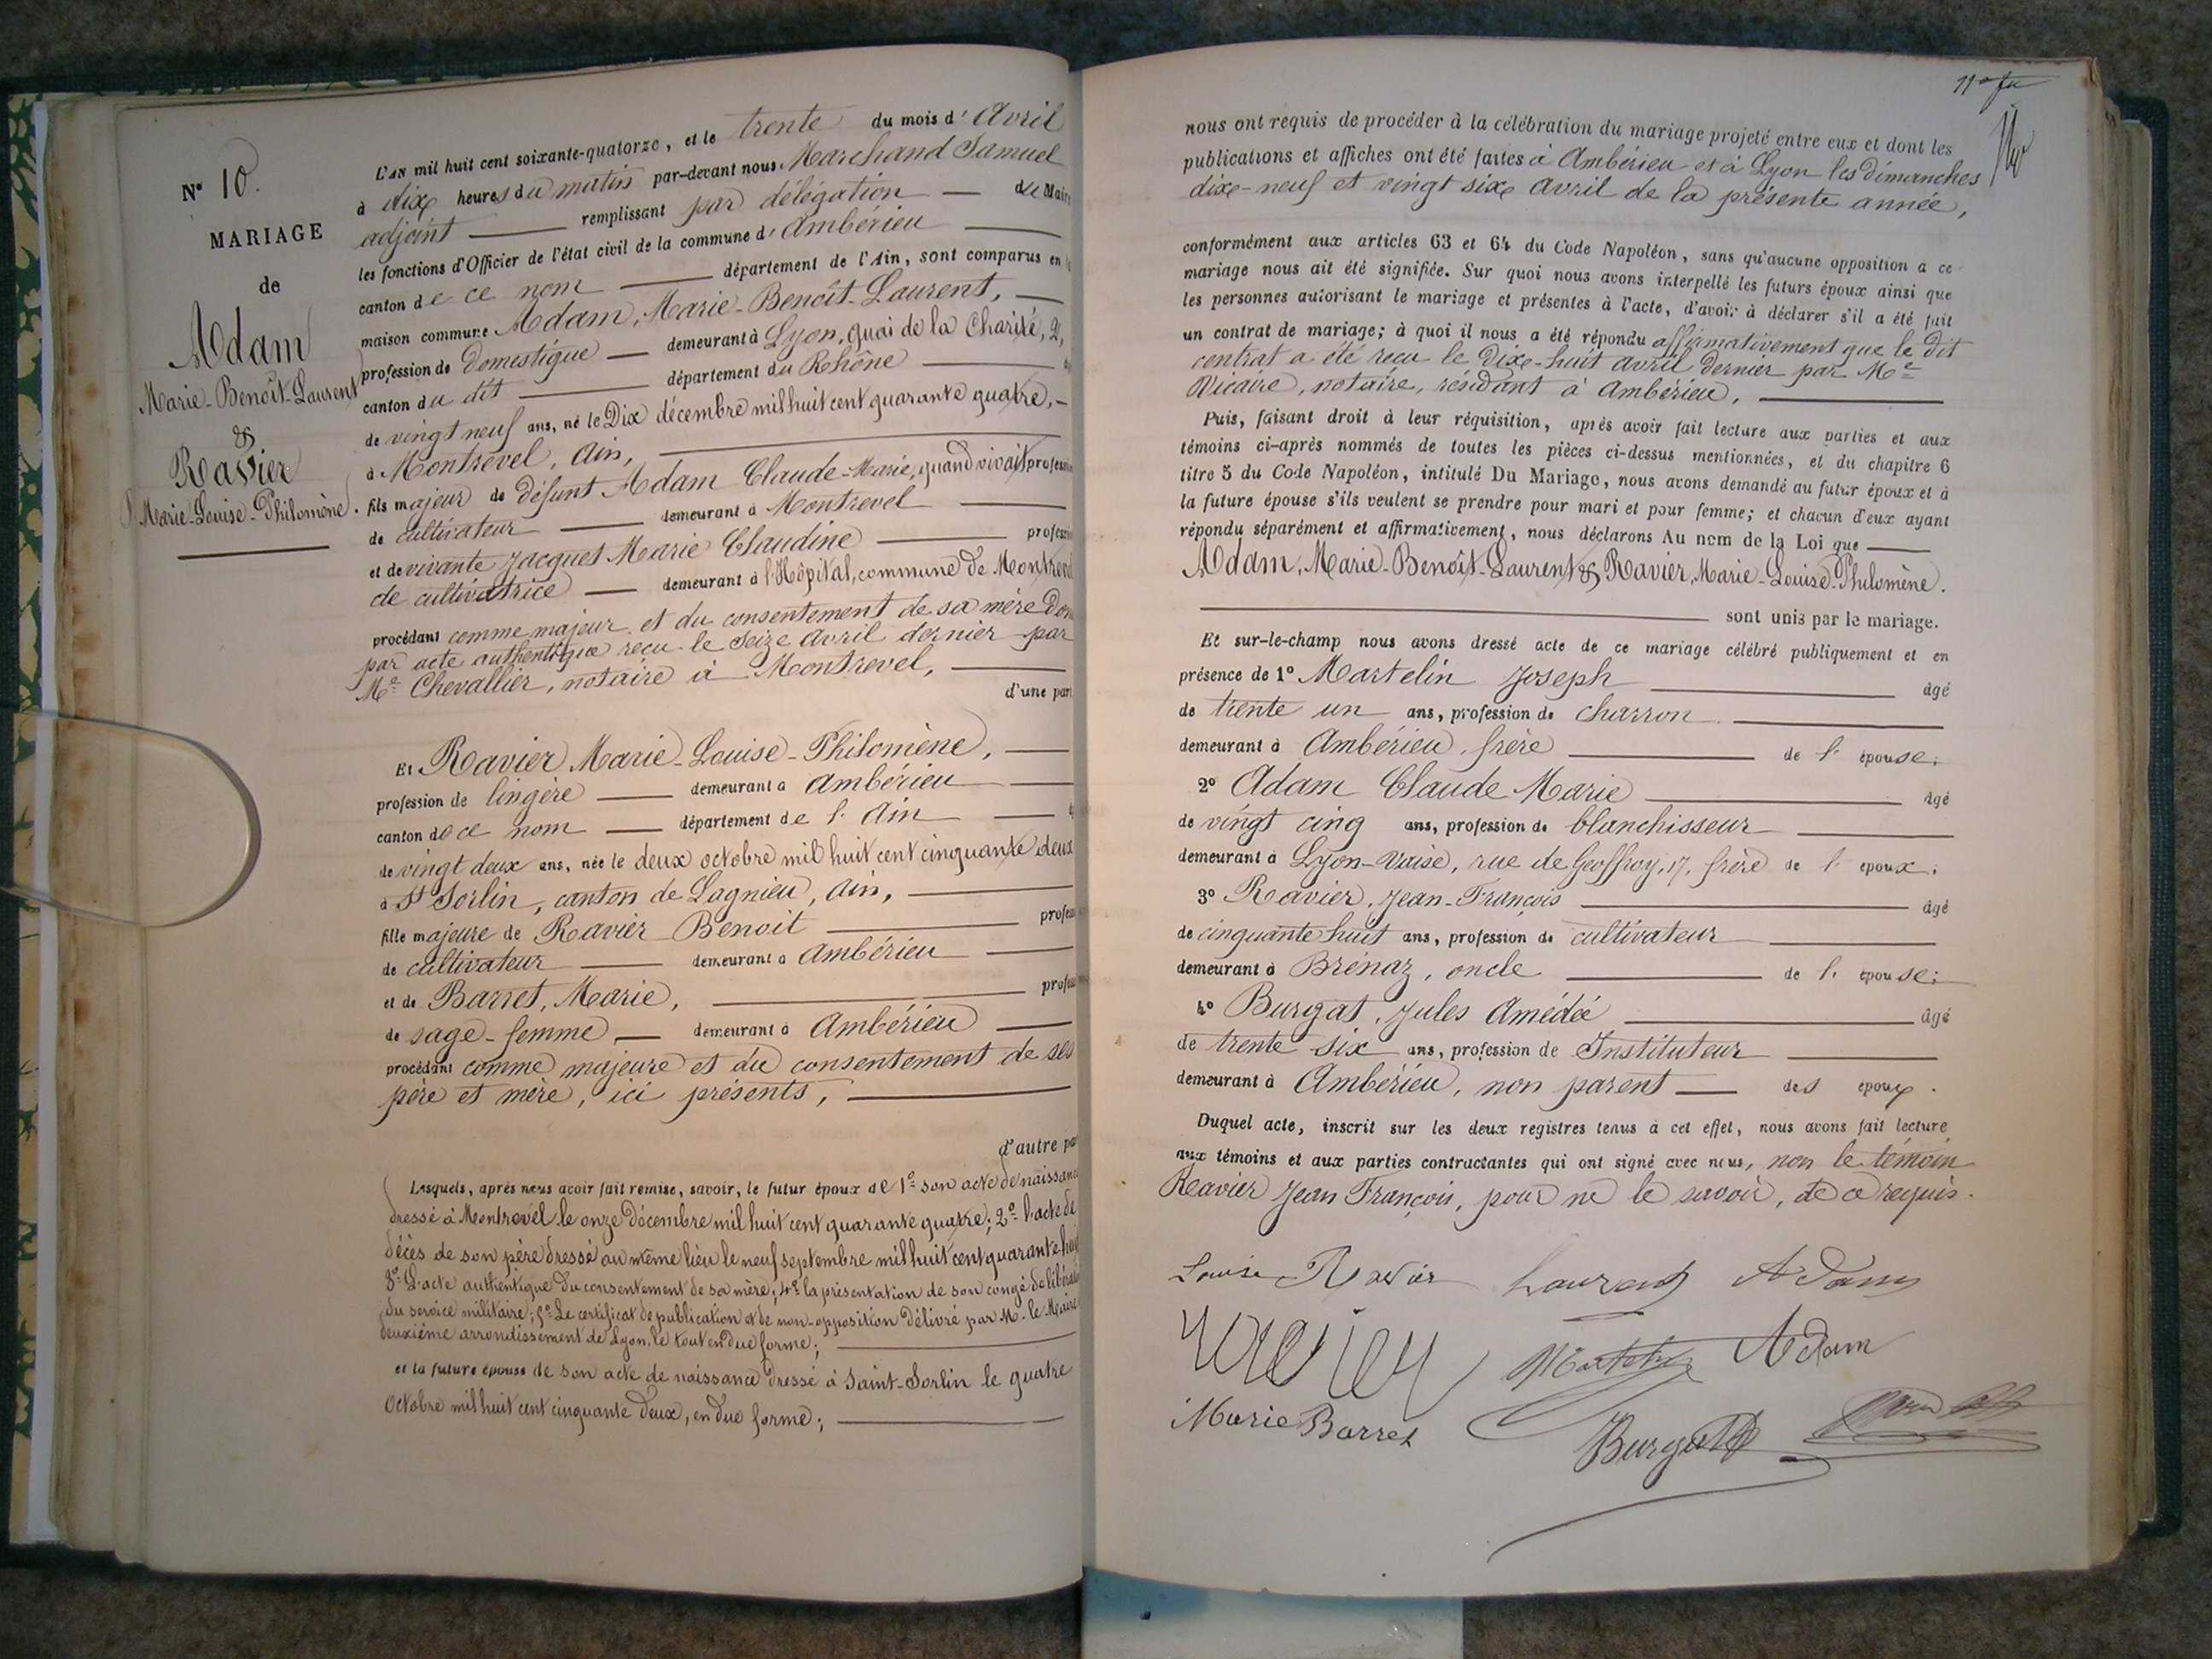 N° 10.
MARIAGE
de
Adam
Marie-Benoît-Laurent
&
Ravier
Marie-Louise-Philomène.
L'AN mil huit cent soixante-quatorze, et le trente du mois d'Avril
à dix heures du matin par-devant nous Marchand Samuel
adjoint remplissant par délégation du Maire
les fonctions d'Officier de l'état civil de la commune d'Ambérieu
canton de ce nom département de l'Ain, sont comparus en la
maison commune Adam, Marie-Benoît-Laurent,
profession de domestique demeurant à Lyon, quai de la Charité, 2,
canton du dit département du Rhône
de vingt neuf ans, né le Dix décembre mil huit cent quarante quatre,
à Montrevel, Ain,
fils majeur de défunt Adam Claude-Marie, quand vivait profession
de cultivateur demeurant à Montrevel
et de vivante Jacquet Marie Claudine profession
de cultivatrice demeurant à l'Hôpital, commune de Montrevel
procédant comme majeur et du consentement de sa mère
par acte authentique reçu le Seize Avril dernier par
Me Chevallier, notaire à Montrevel,
d'une part
Et Ravier Marie-Louise-Philomène,
profession de lingère demeurant à Ambérieu
canton de ce nom département de l'Ain
de vingt deux ans, née le deux octobre mil huit cent cinquante deux
à St Sorlin, canton de Lagnieu, Ain,
fille majeure de Ravier Benoit profession
de cultivateur demeurant à Ambérieu
et de Barret, Marie, profession
de sage-femme demeurant à Ambérieu
procédant comme majeure et du consentement de ses
père et mère, ici présents,
d'autre part
Lesquels, après nous avoir fait remise, savoir, le futur époux de 1° son acte de naissance
dressé à Montrevel le onze décembre mil huit cent quarante quatre; 2° l'acte de
décès de son père dressé au même lieu le neuf septembre mil huit cent quarante huit
3° L'acte authentique du consentement de sa mère; 4° la présentation de son congé de libération
du service militaire; 5° Le certificat de publication et de non-opposition délivré par M. le Maire
deuxième arrondissement de Lyon, le tout en due forme;
et la future épouse de son acte de naissance dressé à Saint-Sorlin le quatre
Octobre mil huit cent cinquante deux, en due forme;
nous ont requis de procéder à la célébration du mariage projeté entre eux et dont les
publications et affiches ont été faites à Ambérieu et à Lyon les dimanches
dix-neuf et vingt six avril de la présente année,
conformément aux articles 63 et 64 du Code Napoléon, sans qu'aucune opposition à ce
mariage nous ait été signifiée. Sur quoi nous avons interpellé les futurs époux ainsi que
les personnes autorisant le mariage et présentes à l'acte, d'avoir à déclarer s'il a été fait
un contrat de mariage; à quoi il nous a été répondu affirmativement que le dit
contrat a été reçu le Dix-huit avril dernier par Me
Vicaire, notaire, résidant à Ambérieu,
Puis, faisant droit à leur réquisition, après avoir fait lecture aux parties et aux
témoins ci-après nommés de toutes les pièces ci-dessus mentionnées, et du chapitre 6
titre 5 du Code Napoléon, intitulé Du Mariage, nous avons demandé au futur époux et à
la future épouse s'ils veulent se prendre pour mari et pour femme; et chacun d'eux ayant
répondu séparément et affirmativement, nous déclarons Au nom de la Loi que
Adam, Marie-Benoît-Laurent & Ravier, Marie-Louise-Philomène.
sont unis par le mariage.
Et sur-le-champ nous avons dressé acte de ce mariage célébré publiquement et en
présence de 1° Martelin Joseph âgé
de trente un ans, profession de charron
demeurant à Ambérieu, frère de l'épouse;
2° Adam Claude Marie âgé
de vingt cinq ans, profession de blanchisseur
demeurant à Lyon-Vaise, rue de Geoffroy, 17, frère de l'époux;
3° Ravier, Jean-François âgé
de cinquante huit ans, profession de cultivateur
demeurant à Brénaz, oncle de l'épouse;
4° Burgat, Jules Amédée âgé
de trente six ans, profession de Instituteur
demeurant à Ambérieu, non parent des époux.
Duquel acte, inscrit sur les deux registres tenus à cet effet, nous avons fait lecture
aux témoins et aux parties contractantes qui ont signé avec nous, non le témoin
Ravier Jean François, pour ne le savoir, de ce requis.
Louise Ravier Laurent Adam
Martelin Adam
Marie Barret
Burgat